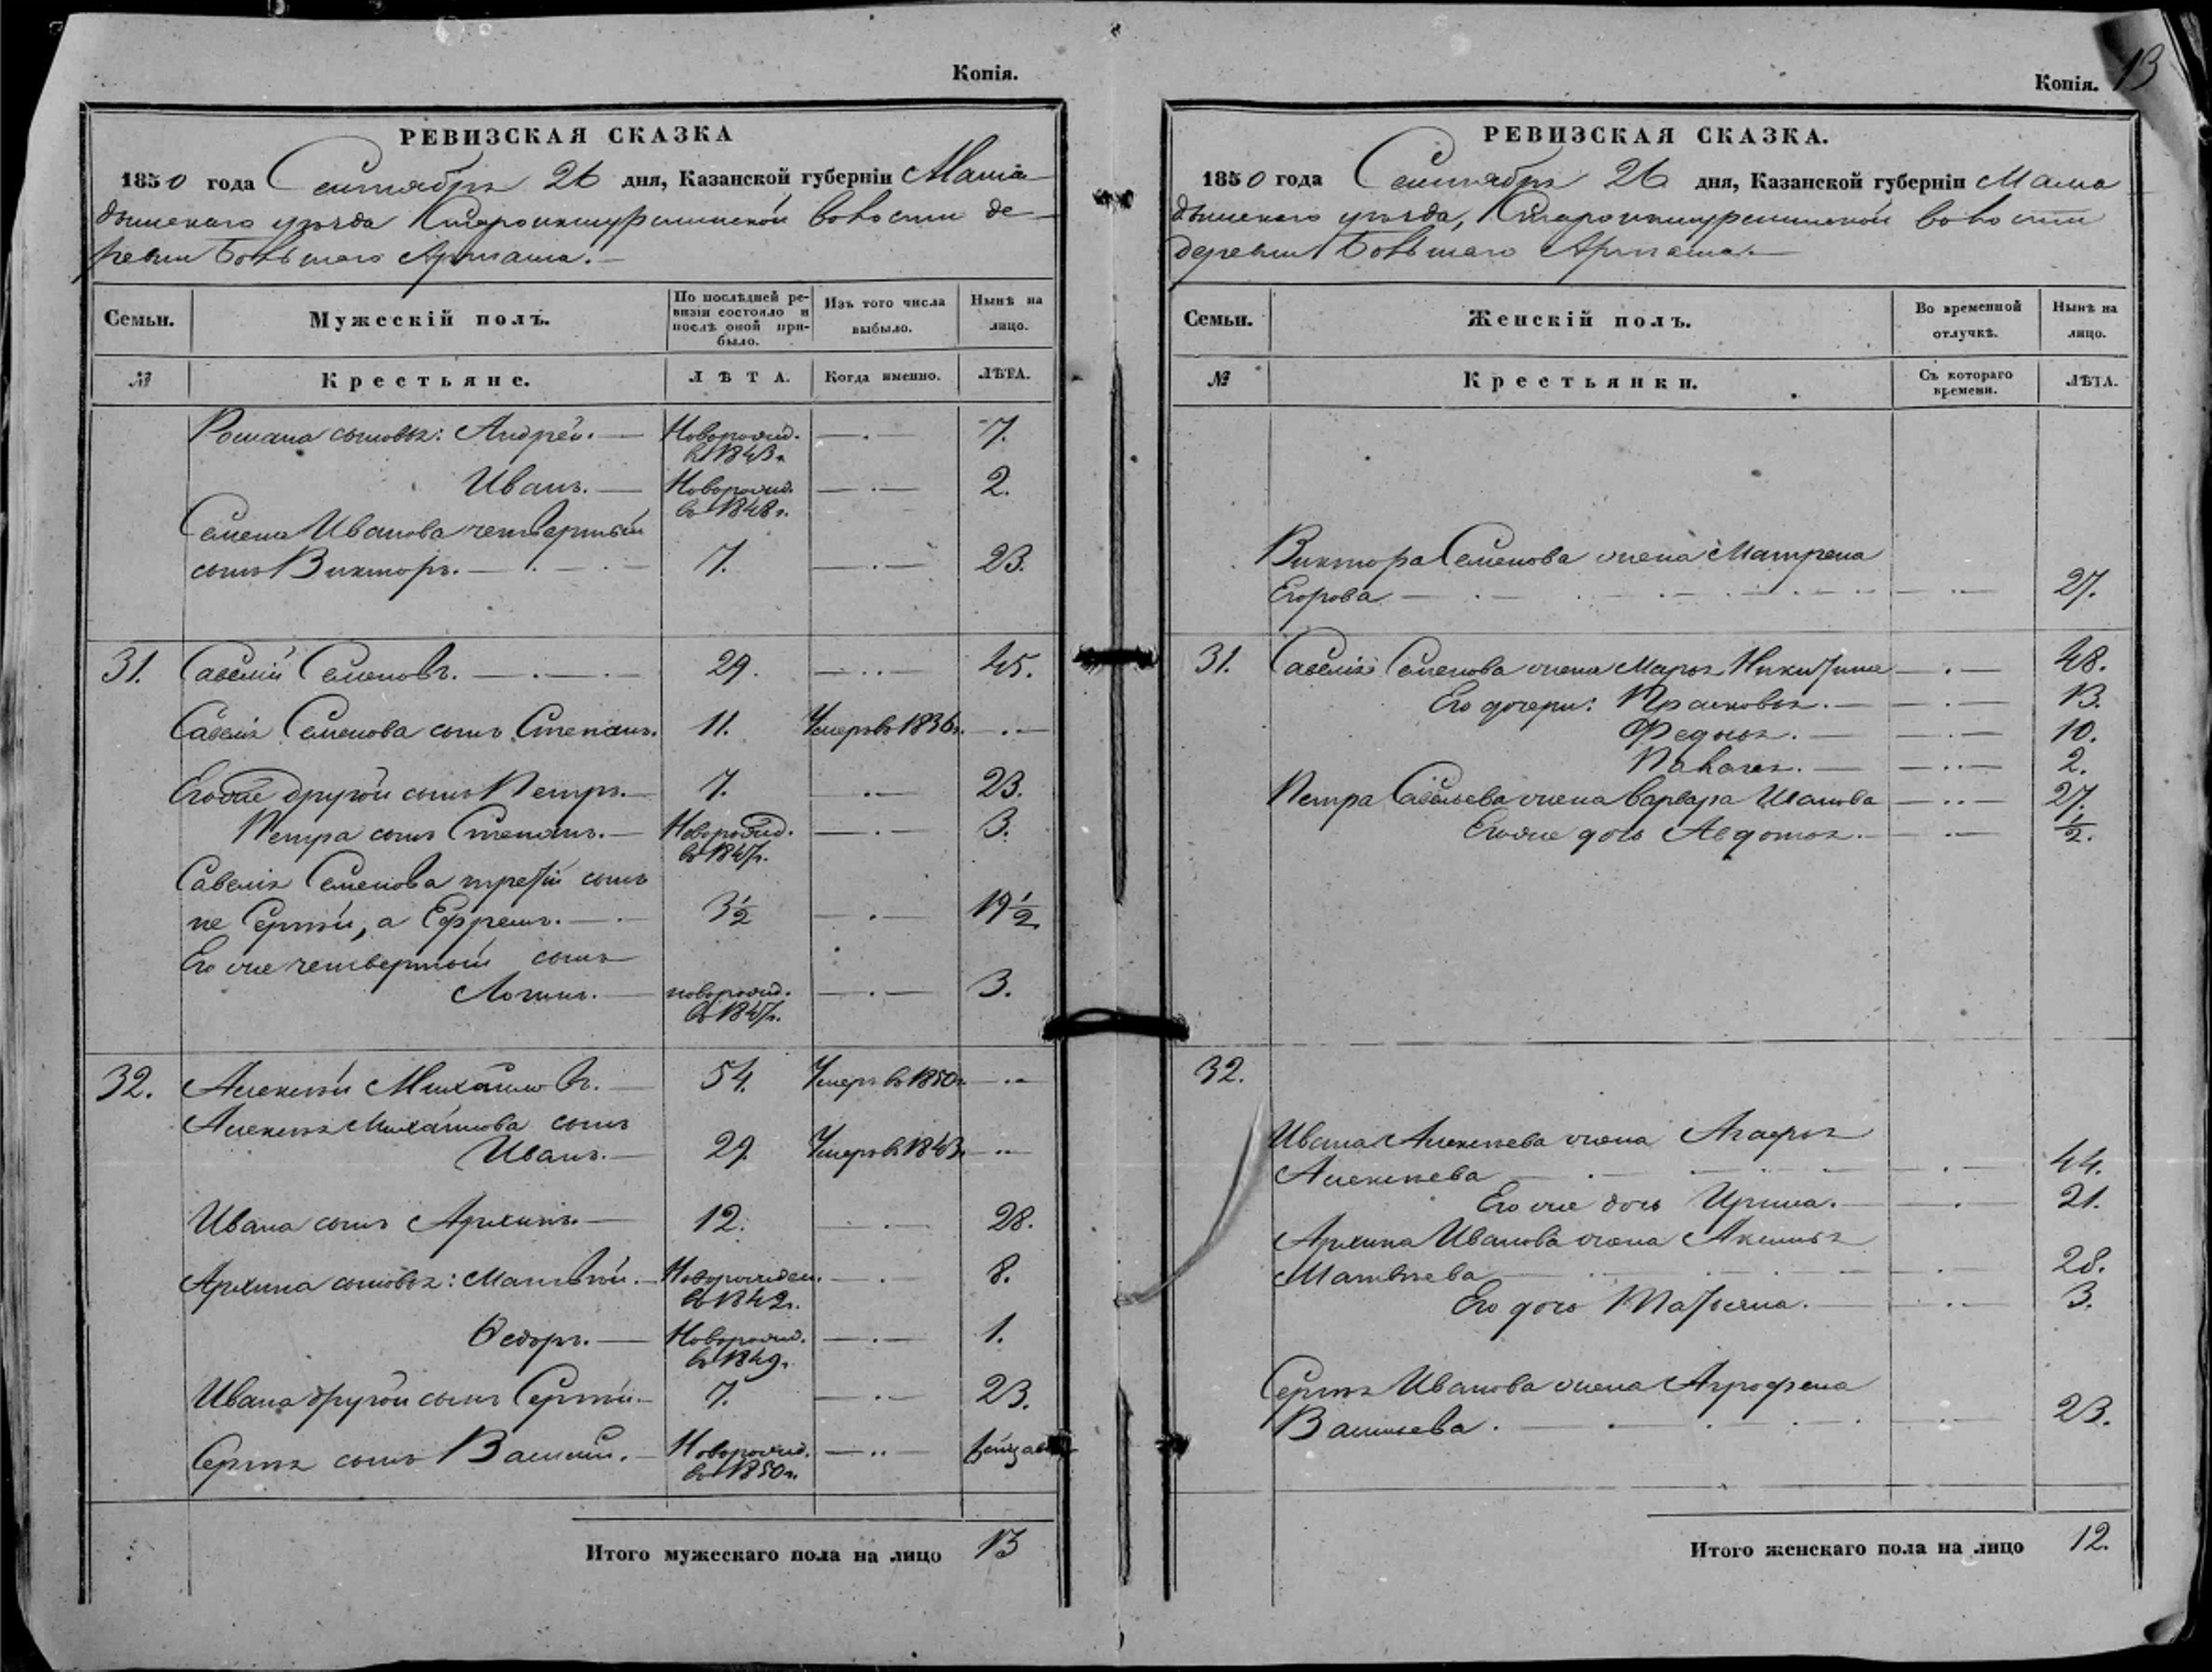 Копія.
РЕВИЗСКАЯ СКАЗКА
1850 года Сентября 26 дня, Казанской губерніи Мама
дышскаго уѣзда Староикшурминской волости де-
ревни Большаго Арташа.
Семьи. Мужескій полъ. По послѣдней ре-визіи состояло и послѣ оной при-было. Изъ того числа выбыло. Нынѣ на лицо.
№ Крестьяне. ЛѢТА. Когда именно. ЛѢТА.
Романа сыновья: Андрей. Новорожд. в 1843г. 7.
Иванъ. Новорожд. въ 1848г. 2.
Семена Иванова четвертый
сынъ Викторъ. 7. 23.
31. Савелій Семеновъ. 29. 45.
Савелья Семенова сынъ Степанъ. 11. Умеръ въ 1836г.
Егоже другой сынъ Петръ. 7. 23.
Петра сынъ Степанъ. Новорожд. въ 1847г. 3.
Савелья Семенова третій сынъ
не Сергѣй, а Ефремъ. 3½ 19½
Его же четвертый сынъ
Логинъ. новорожд. въ 1847г. 3.
32. Алексѣй Михайловъ. 54. Умеръ въ 1850г.
Алексѣя Михайлова сынъ
Иванъ. 29. Умеръ въ 1843г.
Ивана сынъ Архипъ. 12. 28.
Архипа сыновья: Матвѣй. Новорожден. въ 1842г. 8.
Ѳедоръ. Новорожд. въ 1849г. 1.
Ивана другой сынъ Сергѣй. 7. 23.
Сергѣя сынъ Василій. Новорожд. въ 1850г.
Итого мужескаго пола на лицо 13
Копія. 13
РЕВИЗСКАЯ СКАЗКА.
1850 года Сентября 26 дня, Казанской губерніи Мама
дышскаго уѣзда, Староикшурминской волости
деревни Большаго Арташа.
Семьи. Женскій полъ. Во временной отлучкѣ. Нынѣ на лицо.
№ Крестьянки. Съ котораго времени. ЛѢТА.
Виктора Семенова жена Матрена
Егорова 27.
31. Савелья Семенова жена Марья Никитина 48.
Его дочери: Прасковья. 13.
Федосья. 10.
Палагея. 2.
Петра Савельева жена Варвара Иванова 27.
Егоже дочь Авдотья. ½.
32.
Ивана Алексѣева жена Агафья
Алексѣева 44.
Его же дочь Ирина. 21.
Архипа Иванова жена Аксинья
Матвѣева 28.
Его дочь Татьяна. 3.
Сергѣя Иванова жена Агрофена
Васильева. 23.
Итого женскаго пола на лицо 12.